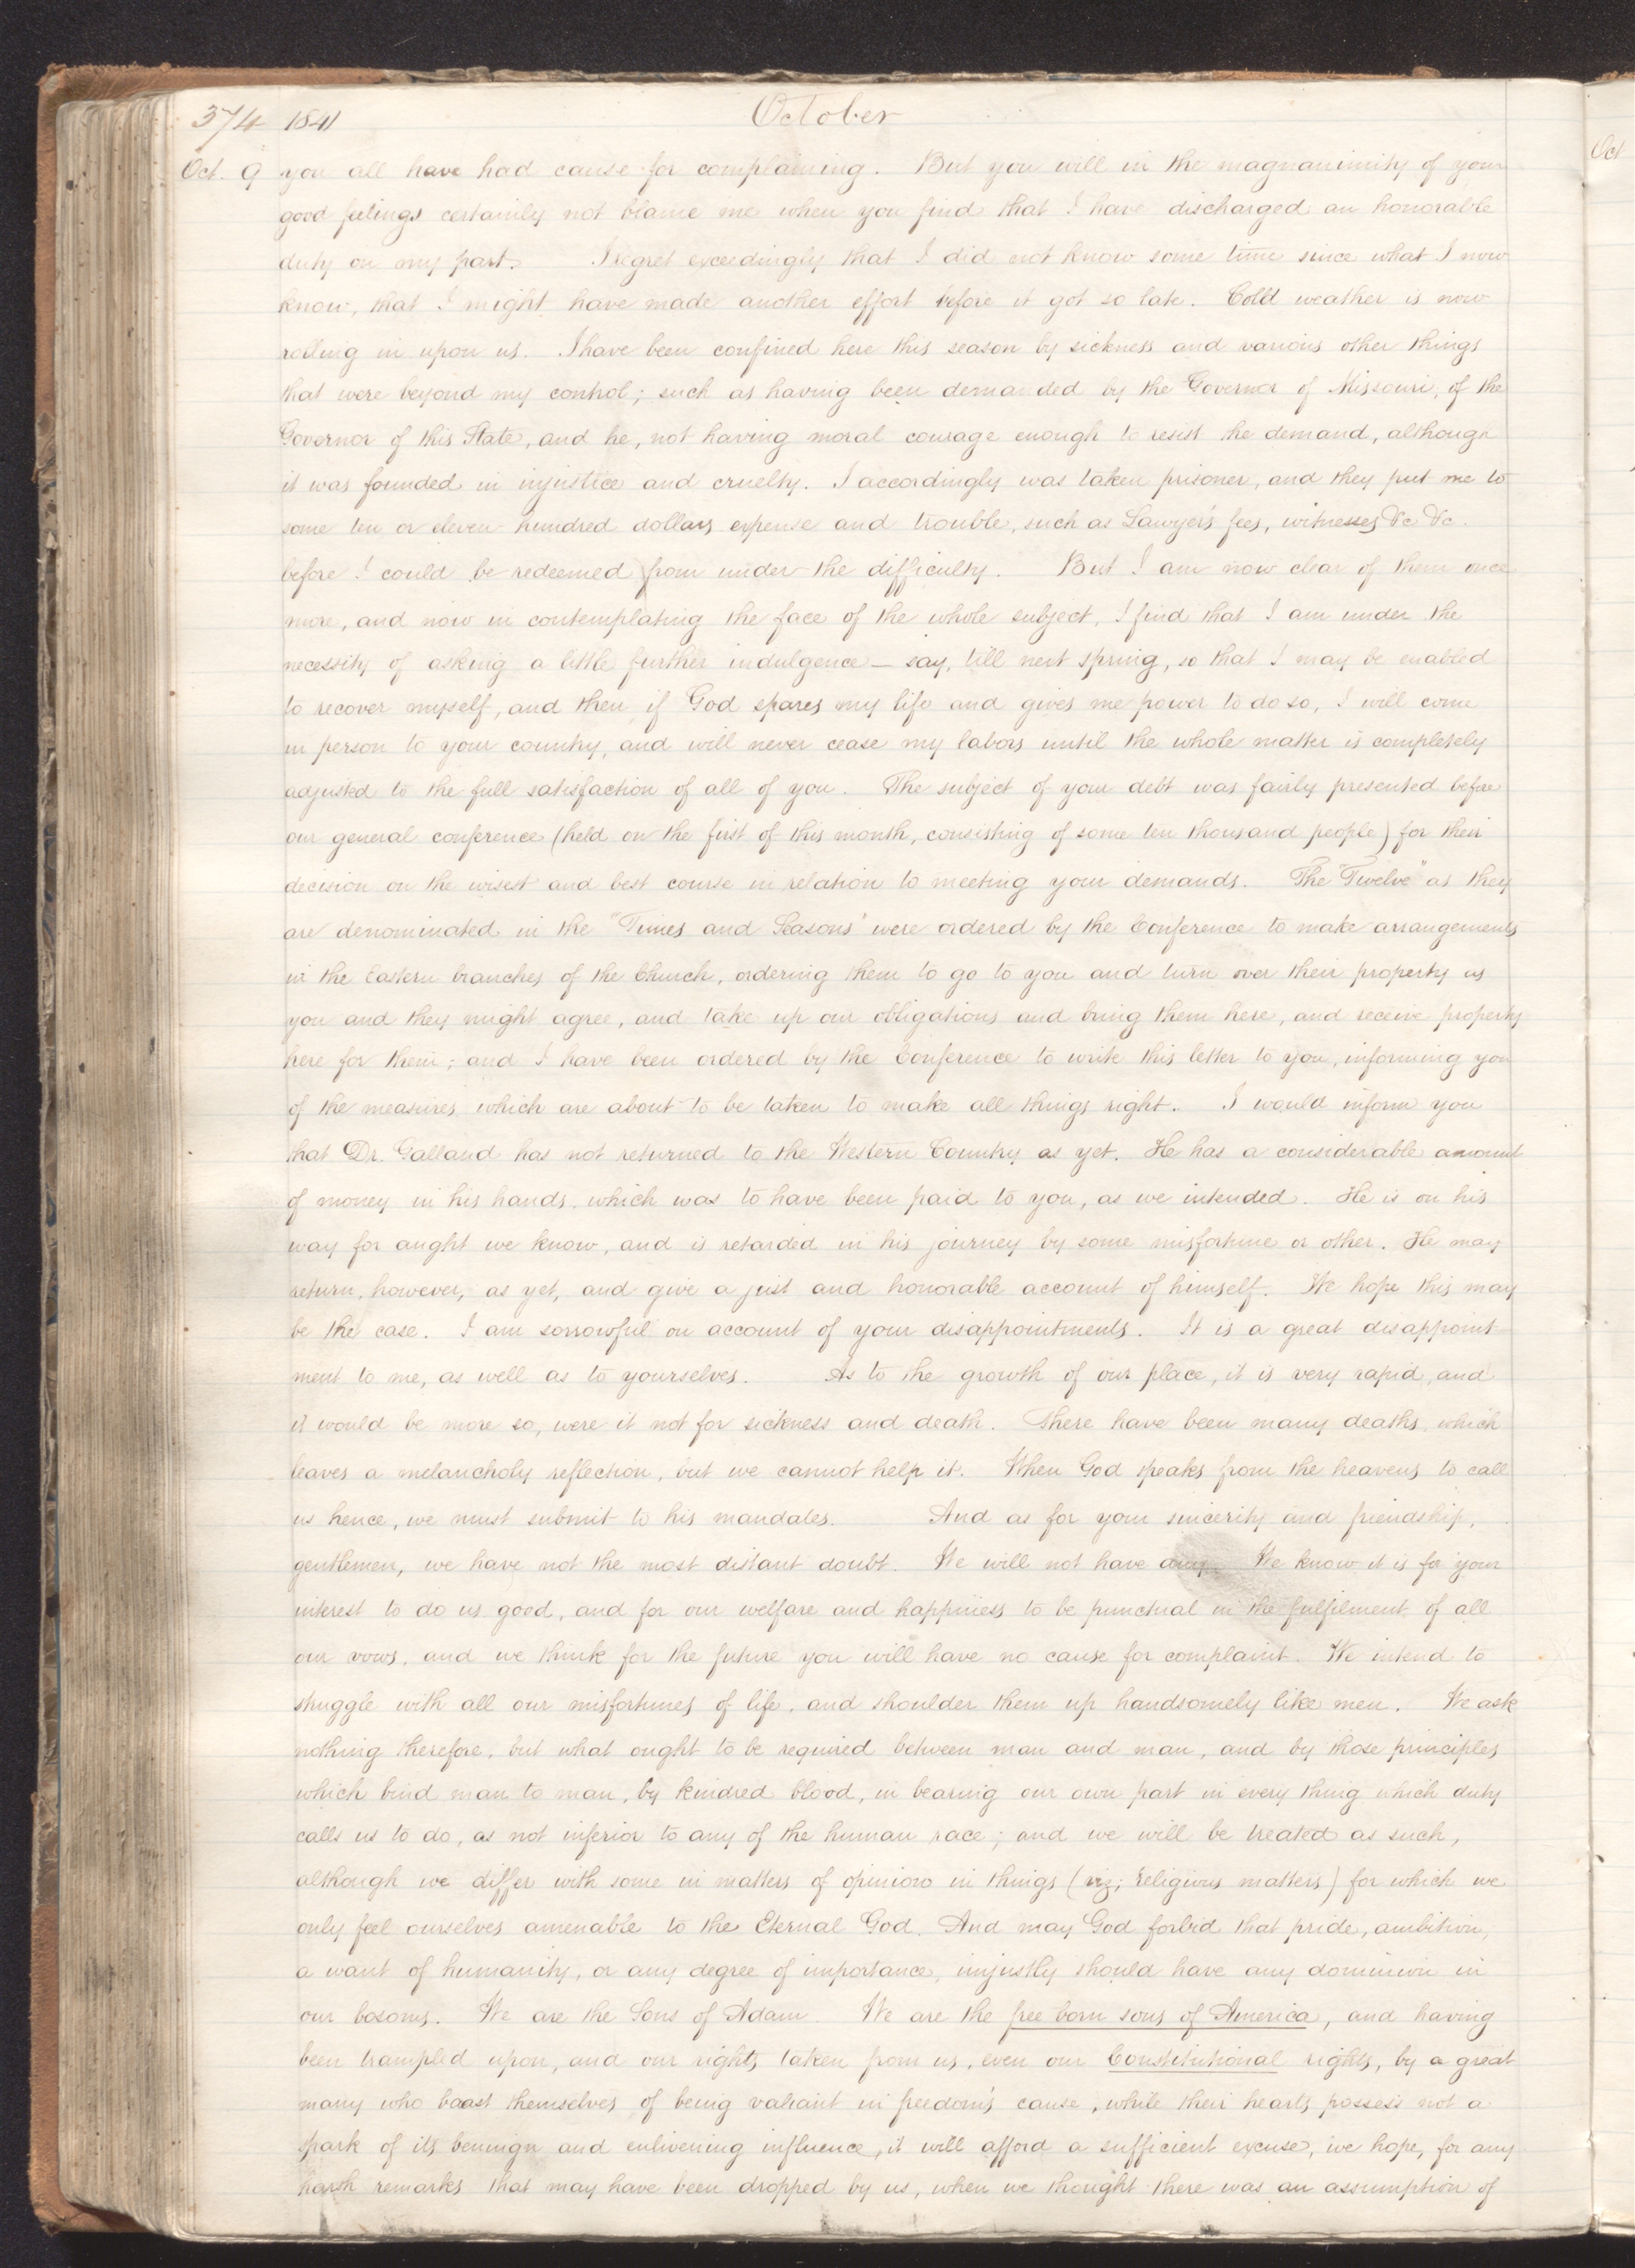 374 1841 October
Oct. 9 you all have had cause for complaining. But you will in the magnanimity of your
good feelings certainly not blame me when you find that I have discharged an honorable
duty on my part. I regret exceedingly that I did not know some time since what I now
know, that I might have made another effort before it got so late. Cold weather is now
rolling in upon us. I have been confined here this season by sickness and various other things
that were beyond my control; such as having been demanded by the Governor of Missouri, of the
Governor of this State, and he, not having moral courage enough to resist the demand, although
it was founded in injustice and cruelty. I accordingly was taken prisoner, and they put me to
some ten or eleven hundred dollars expense and trouble, such as Lawyer's fees, witnesses &c &c.
before I could be redeemed from under the difficulty. But I am now clear of them once
more, and now in contemplating the face of the whole subject, I find that I am under the
necessity of asking a little further indulgence — say, till next spring, so that I may be enabled
to recover myself, and then if God spares my life and gives me power to do so, I will come
in person to your country, and will never cease my labors until the whole matter is completely
adjusted to the full satisfaction of all of you. The subject of your debt was fairly presented before
our general conference (held on the first of this month, consisting of some ten thousand people) for their
decision on the wisest and best course in relation to meeting your demands. The "Twelve" as they
are denominated in the "Times and Seasons" were ordered by the Conference to make arrangements
in the Eastern branches of the Church, ordering them to go to you and turn over their property as
you and they might agree, and take up our obligations and bring them here, and receive property
here for them; and I have been ordered by the Conference to write this letter to you, informing you
of the measures which are about to be taken to make all things right. I would inform you
that Dr. Galland has not returned to the Western Country as yet. He has a considerable amount
of money in his hands, which was to have been paid to you, as we intended. He is on his
way for aught we know, and is retarded in his journey by some misfortune or other. He may
return, however, as yet, and give a just and honorable account of himself. We hope this may
be the case. I am sorrowful on account of your disappointments. It is a great disappoint
ment to me, as well as to yourselves. As to the growth of our place, it is very rapid, and
it would be more so, were it not for sickness and death. There have been many deaths, which
leaves a melancholy reflection, but we cannot help it. When God speaks from the heavens to call
us hence, we must submit to his mandates. And as for your sincerity and friendship,
gentlemen, we have not the most distant doubt. We will not have any. We know it is for your
interest to do us good, and for our welfare and happiness to be punctual in the fulfilment of all
our vows, and we think for the future you will have no cause for complaint. We intend to
struggle with all our misfortunes of life, and shoulder them up handsomely like men. We ask
nothing therefore, but what ought to be required between man and man, and by those principles
which bind man to man, by kindred blood, in bearing our own part in every thing which duty
calls us to do, as not inferior to any of the human race; and we will be treated as such,
although we differ with some in matters of opinion in things (viz; religious matters) for which we
only feel ourselves amenable to the Eternal God. And may God forbid that pride, ambition,
a want of humanity, or any degree of importance, unjustly should have any dominion in
our bosoms. We are the Sons of Adam. We are the free born sons of America, and having
been trampled upon, and our rights taken from us, even our Constitutional rights, by a great
many who boast themselves of being valiant in freedom's cause, while their hearts possess not a
spark of its benign and enlivening influence, it will afford a sufficient excuse, we hope, for any
harsh remarks that may have been dropped by us, when we thought there was an assumption of
Oct